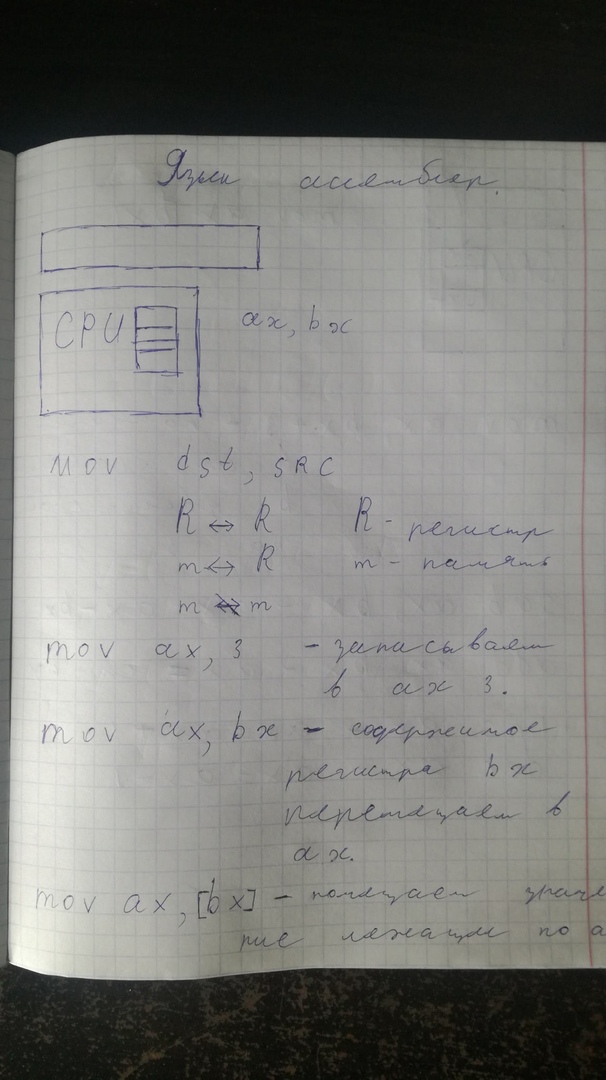 Язык ассемблер.
CPU
ax, bx
mov dst, SRC
R ↔ R R - регистр
m ↔ R m - память
m ↮ m
mov ax, 3 - записываем
в ax 3.
mov ax, bx - содержимое
регистра bx
перемещаем в
ax.
mov ax, [bx] - помещаем значе
ние лежащие по а